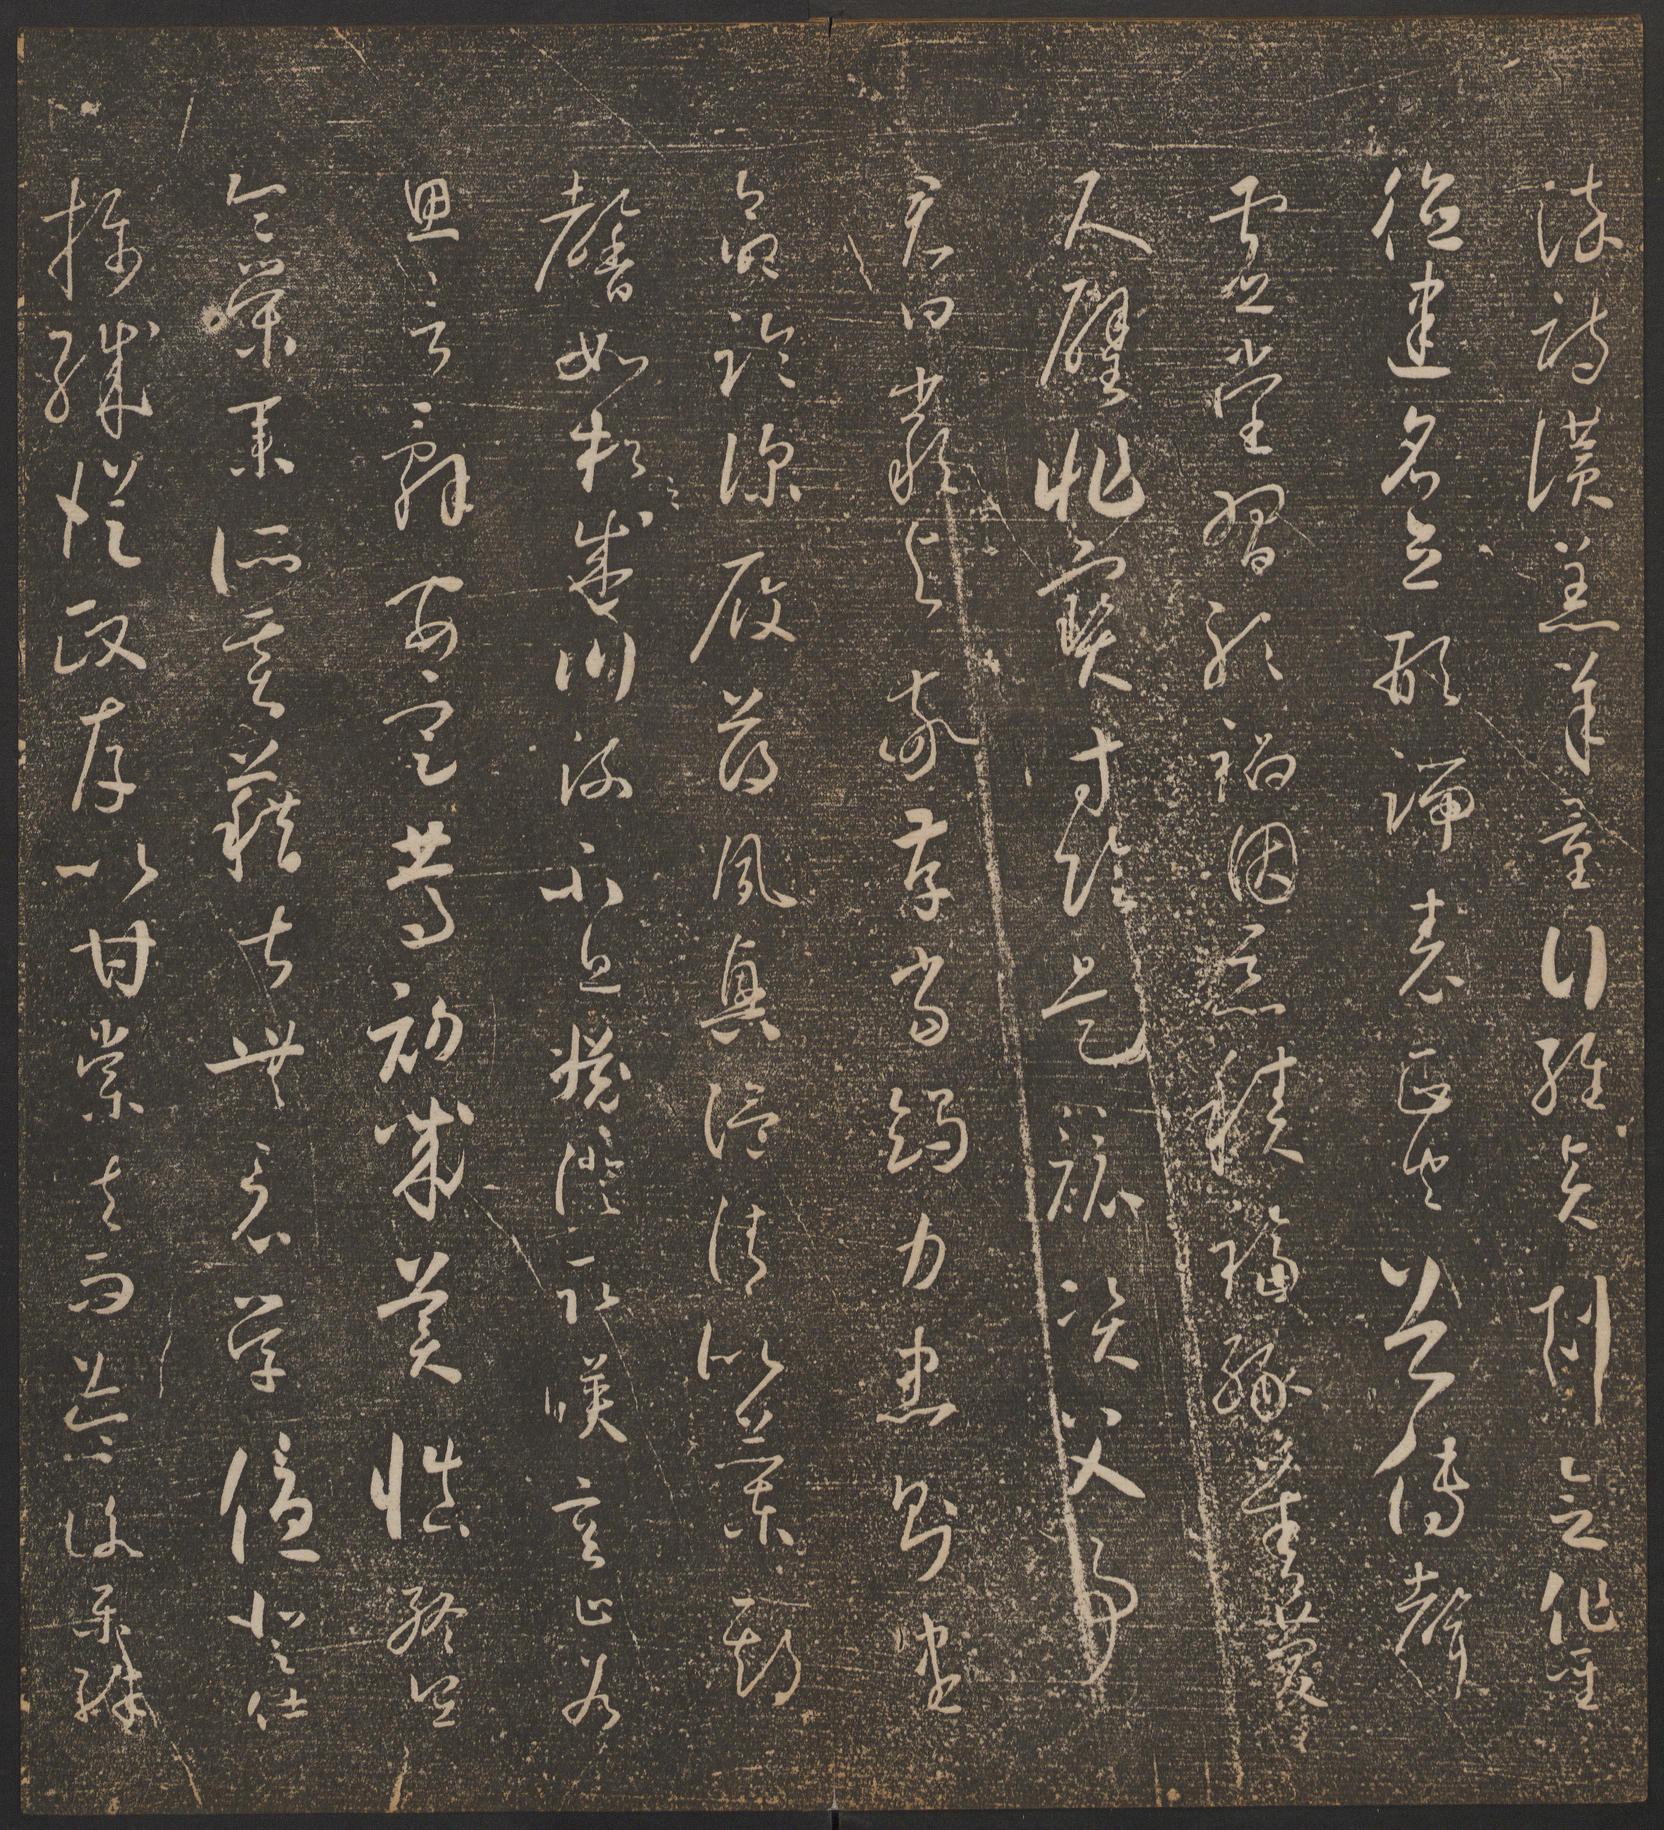 染詩讚羔羊景行維賢剋念作聖
德建名立形端表正空谷傳聲
虛堂習聽禍因惡積福緣善慶
尺璧非寶寸陰是競資父事
君曰嚴與敬孝當竭力忠則盡
命臨深履薄夙興溫凊似蘭斯
馨如松之盛川流不息淵澄取暎容止若
思言辭安定篤初誠美慎終宜
令榮業所基藉甚無竟學優登仕
攝職從政存以甘棠去而益詠樂殊